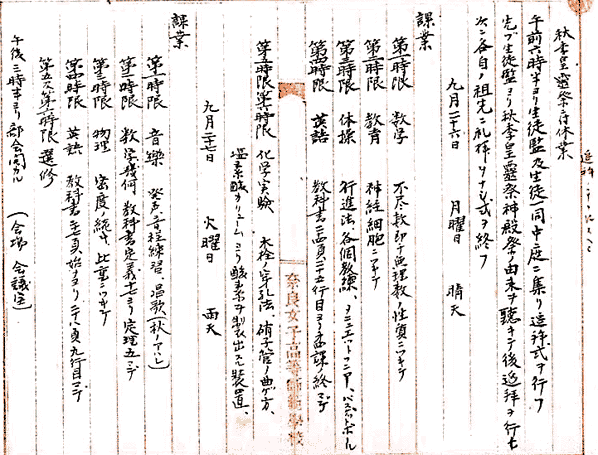 秋季皇霊祭ニ付休業
午前六時半ヨリ生徒監及生徒一同中庭ニ集リ遥拝式ヲ行フ
先ヅ生徒監ヨリ秋季皇霊祭神殿祭ノ由来ヲ聴キテ後遥拝ヲ行ヒ
次ニ各自ノ祖先ニ礼拝ヲナシ式ヲ終フ
九月二十六日 月曜日 晴天
課業
第一時限 数学 不尽数即チ無理数ノ性質ニツキテ
第二時限 教育 神経細胞ニツキテ
第三時限 体操 行進法、各個教練、
第四時限 英語 教科書 二十五行目ヨリ 課終マデ
第五時限第六時限 化学実験 木栓ノ穿孔法、硝子管ノ曲ゲ方、
塩素酸カリュームヨリ酸素ヲ製出スル装置、
奈良女子高等師範学校
九月二十七日 火曜日 雨天
課業
第一時限 音楽 発声音程練習、唱歌(秋ノアハレ)
第二時限 数学幾何 教科書定義十二ヨリ定理五マデ
第三時限 物理 密度ノ続キ、比重ニツキテ
第四時限 英語 教科書二十七頁始メヨリ二十八頁九行目マデ
第五及第六時限 選修
午後三時半ヨリ部会開カル (会場 会議室)